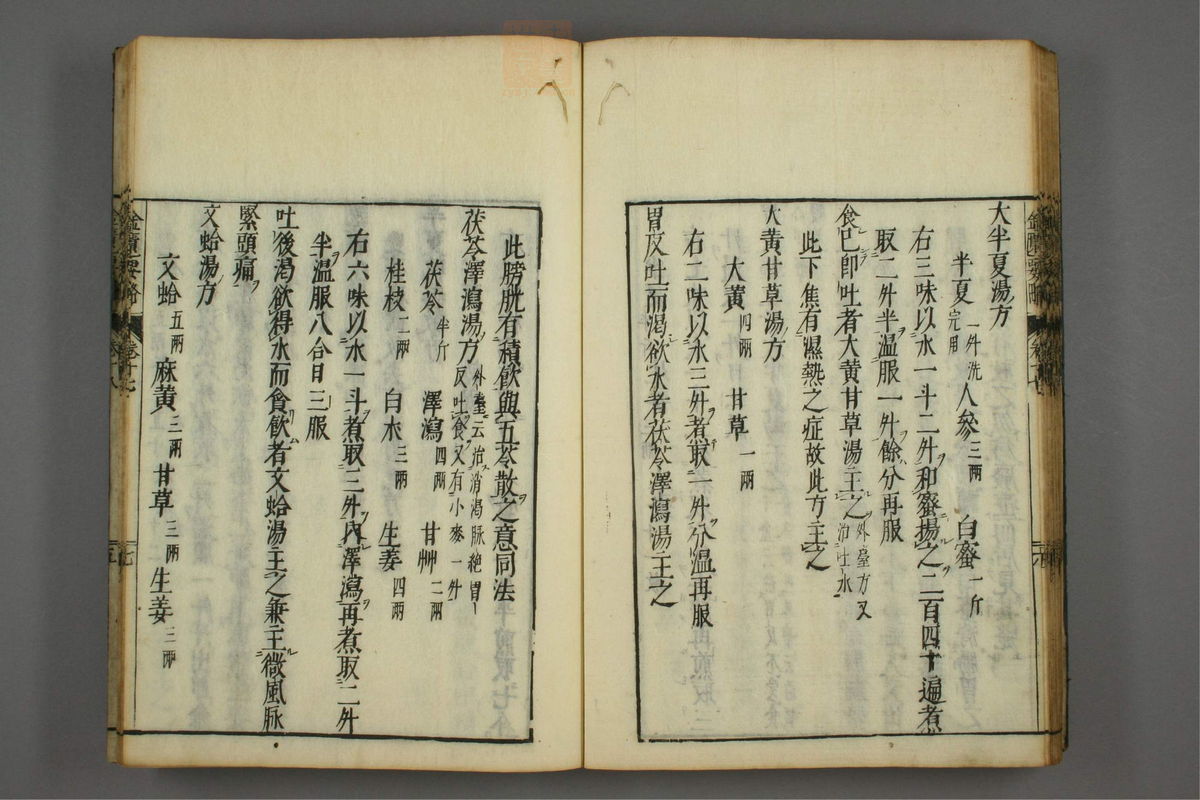 大半夏湯方
半夏二升洗完用 人參三兩 白蜜一斤
右三味以水一斗二升和蜜揚之二百四十遍煮
取二升半溫服一升餘分再服
食已即吐者大黄甘草湯主之外臺方又治吐水
此下焦有濕熱之症故此方主之
大黄甘草湯方
大黄四兩 甘草一兩
右二味以水三升煮取一升分溫再服
胃反吐而渴欲水者茯苓澤瀉湯主之
此膀胱有積飲與五苓散之意同法
茯苓澤瀉湯方外臺云治消渴脉絶胃反吐食又有小麥一升
茯苓半斤 澤瀉四兩 甘艸二兩
桂枝二兩 白朮三兩 生姜四兩
右六味以水一斗煮取三升内澤瀉再煮取二升
半溫服八合日三服
吐後渴欲得水而貪飲者文蛤湯主之兼主微風脉
緊頭痛
文蛤湯方
文蛤五兩 麻黄三兩 甘草三兩 生姜三兩